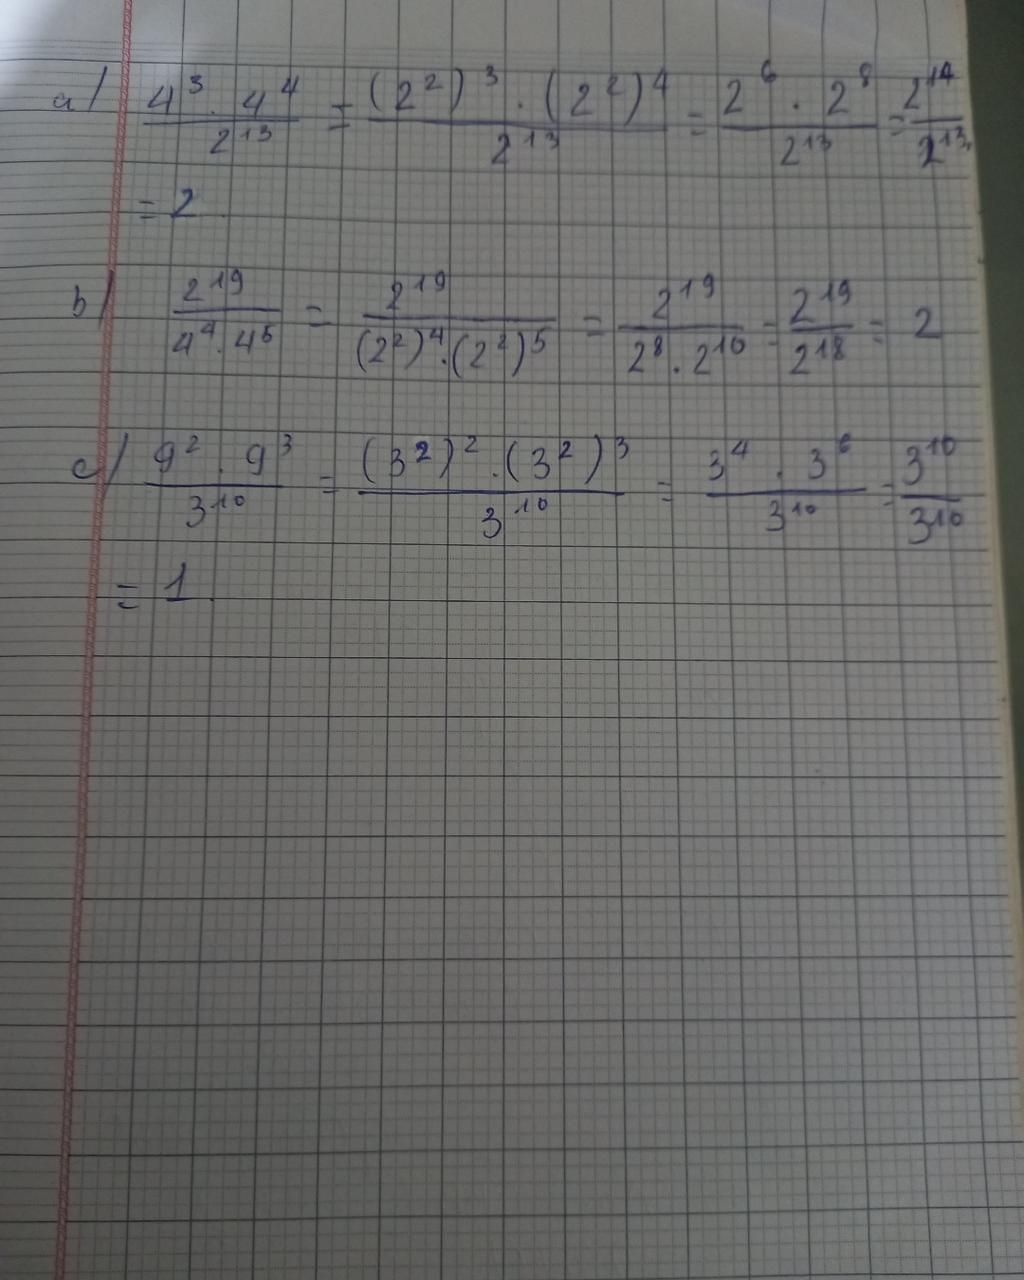 a) \frac{4^3 . 4^4}{2^{13}} = \frac{(2^2)^3 . (2^2)^4}{2^{13}} = \frac{2^6 . 2^8}{2^{13}} = \frac{2^{14}}{2^{13}}
= 2
b) \frac{2^{19}}{4^4 . 4^5} = \frac{2^{19}}{(2^2)^4 . (2^2)^5} = \frac{2^{19}}{2^8 . 2^{10}} = \frac{2^{19}}{2^{18}} = 2
c) \frac{9^2 . 9^3}{3^{10}} = \frac{(3^2)^2 . (3^2)^3}{3^{10}} = \frac{3^4 . 3^6}{3^{10}} = \frac{3^{10}}{3^{10}}
= 1